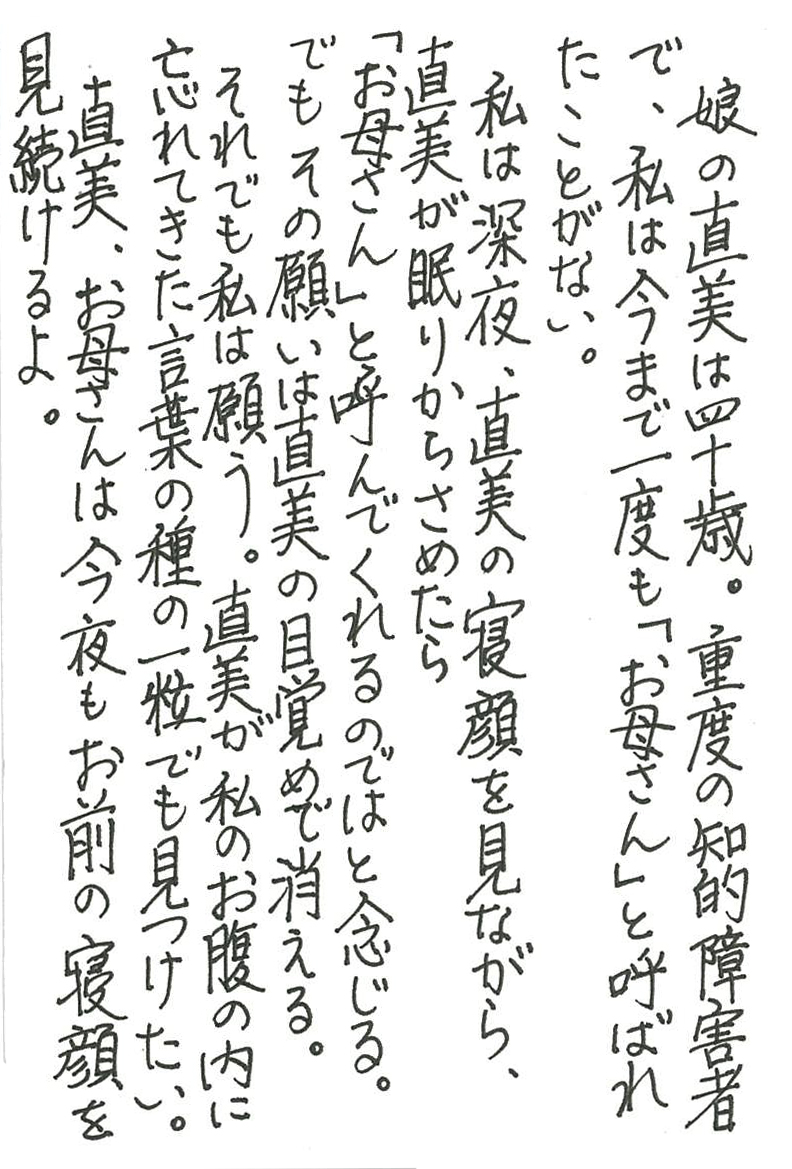 娘の直美は四十歳。重度の知的障害者
で、私は今まで一度も「お母さん」と呼ばれ
たことがない。
私は深夜、直美の寝顔を見ながら、
直美が眠りからさめたら
「お母さん」と呼んでくれるのではと念じる。
でもその願いは直美の目覚めで消える。
それでも私は願う。直美が私のお腹の内に
忘れてきた言葉の種の一粒でも見つけたい。
直美、お母さんは今夜もお前の寝顔を
見続けるよ。